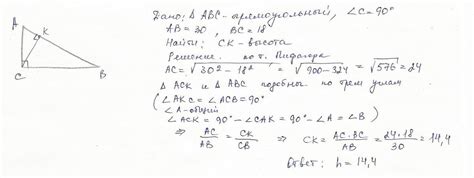 A
K
C
B
Дано: Δ ABC - прямоугольный, ∠C = 90°
AB = 30, BC = 18
Найти: CK - высота
Решение. по т. Пифагора
AC = √30² - 18² = √900 - 324 = √576 = 24
Δ ACK и Δ ABC подобны по трем углам
(∠AKC = ∠ACB = 90°
∠A - общий
∠ACK = 90° - ∠CAK = 90° - ∠A = ∠B)
⇒ AC/AB = CK/CB ⇒ CK = AC·BC/AB = 24·18/30 = 14,4
Ответ: h = 14,4